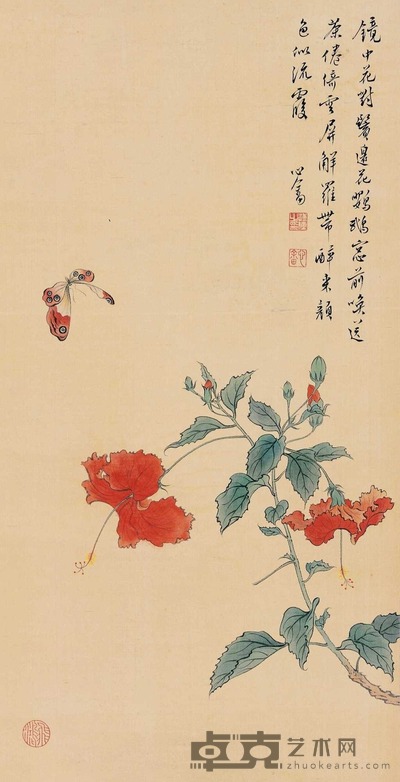 鏡中花對鬢邊花鸚鵡窓前喚送
茶倦倚雲屏解羅帶醉來顏
色似流霞
心畬
卓克艺术网
zhuokearts.com